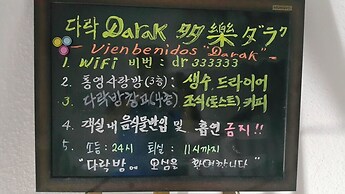 다락 Darak 多樂 ダラク
Vienbenidos "Darak"
1. WiFi 비번 : dr333333
2. 통영사랑방(3층) : 생수, 드라이어
3. 다락방창고(4층) 조식(토스트) 커피
4. 객실내 음식물반입 및 흡연 금지!!
5. 소등 : 24시 퇴실 : 11시까지
"다락방에 오심을 환영합니다"